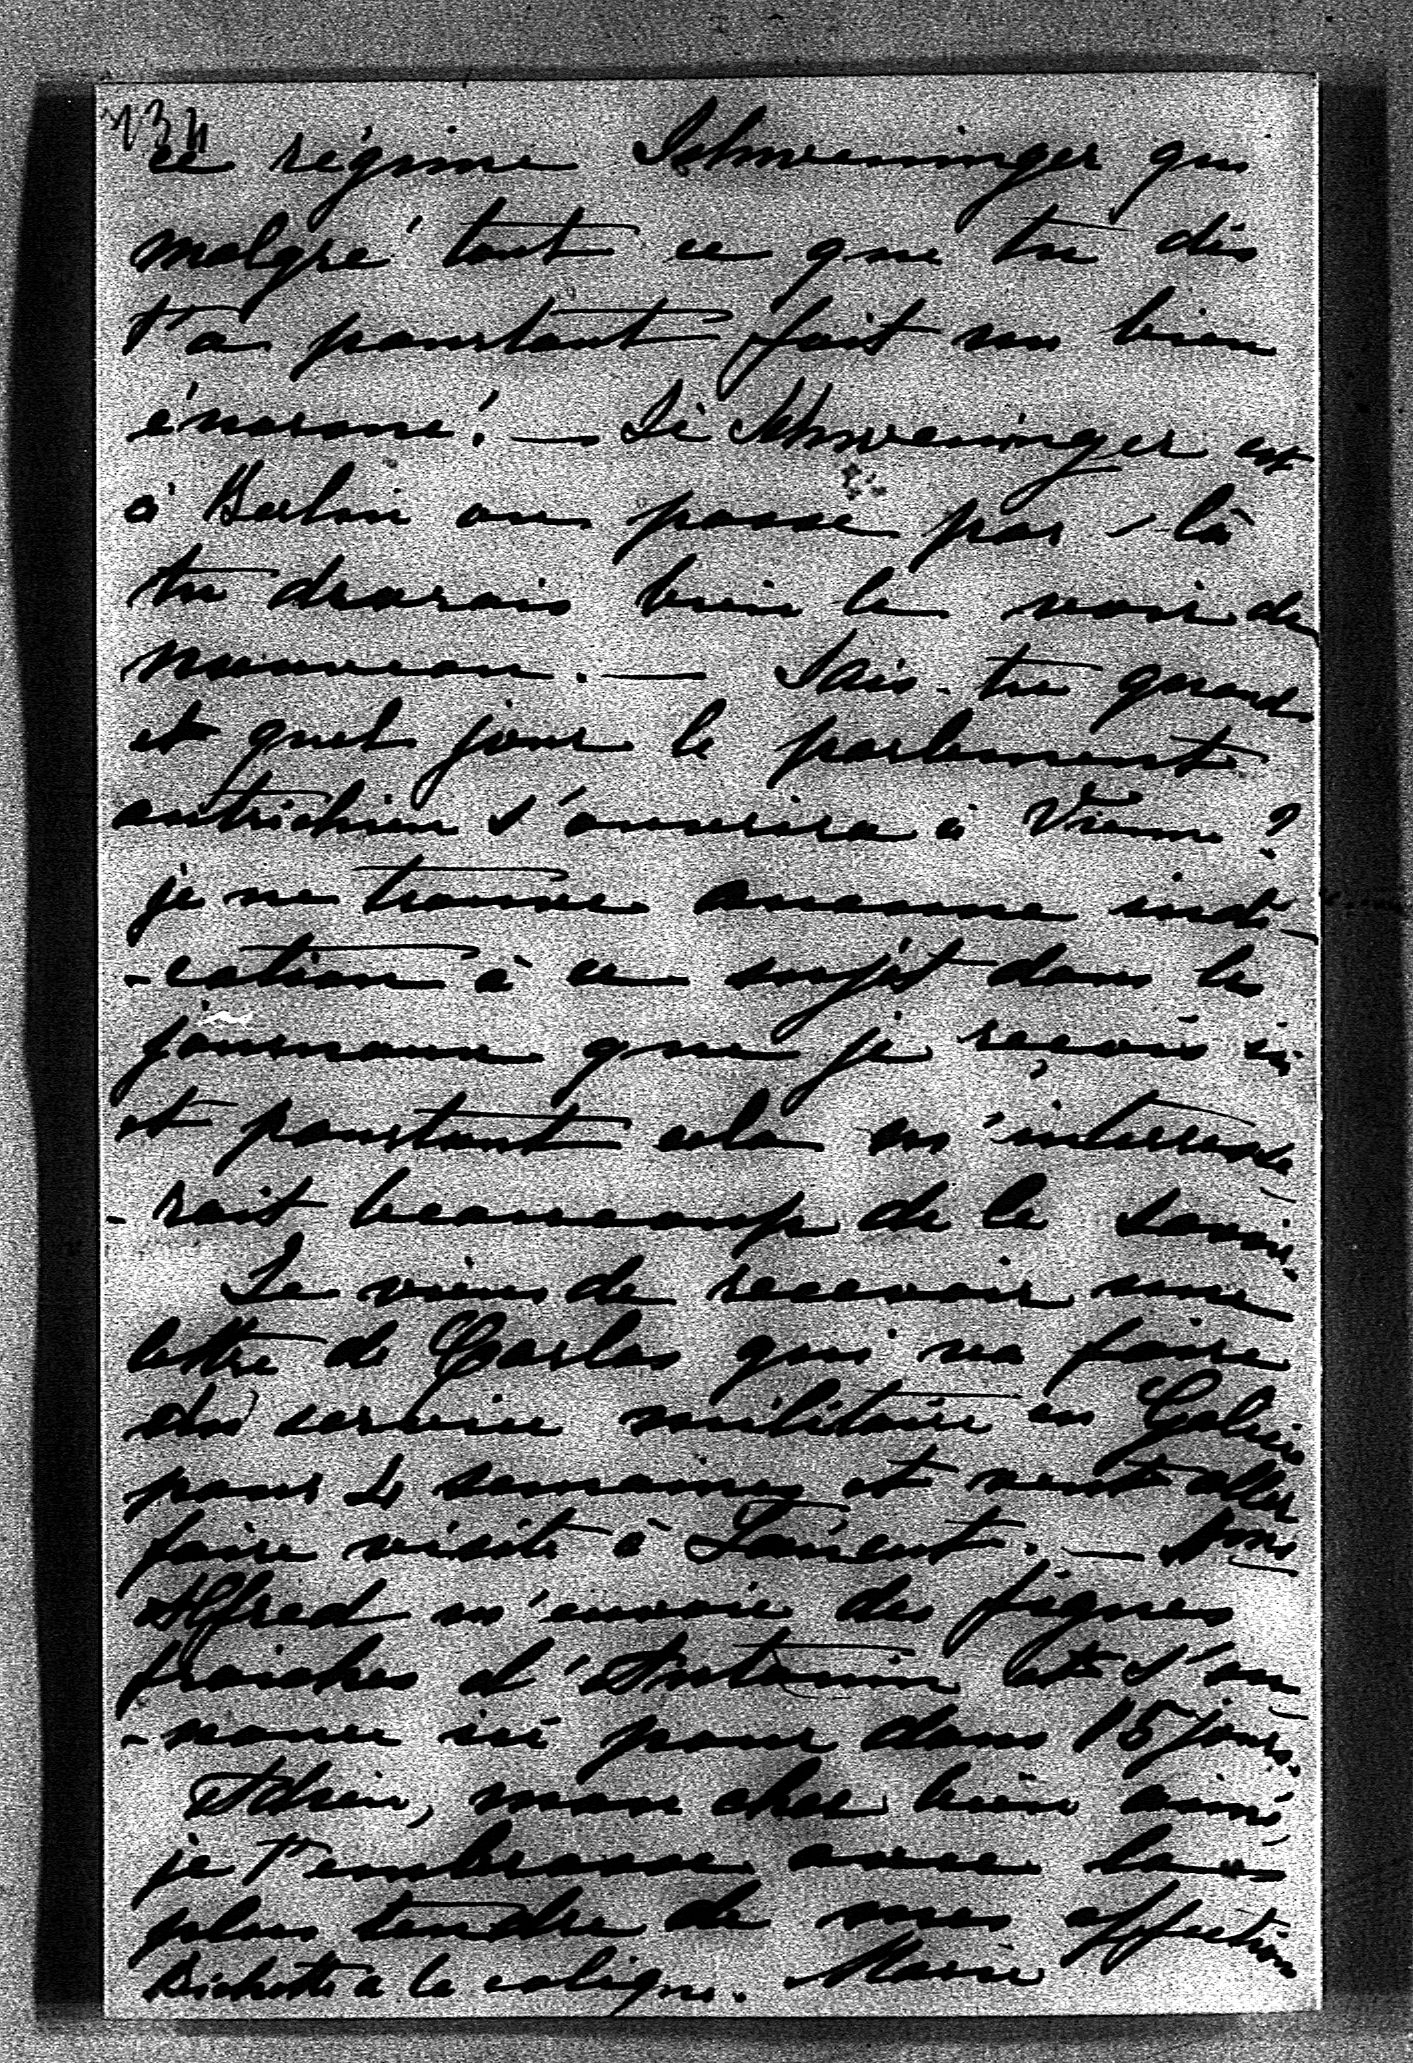 234
ce régime Schweninger qui
malgré tout ce que tu dis
t'a pourtant fait un bien
énorme! — Si Schweninger est
à Berlin ou passe par-là
tu devrais bien le voir de
nouveau. — Sais-tu quand
et quel jour le parlement
autrichien s'ouvrira à Vienne?
je ne trouve aucune indi-
-cation à ce sujet dans les
journaux que je reçois ici
et pourtant cela m'interesse
-rait beaucoup de le savoir.
Je viens de recevoir une
lettre de Charles qui va faire
du service militaire en Galicie
pour 4 semaines et veut aller
faire visite à Lancut. —
Alfred m'envoie des figues
fraiches d'Antonin et s'an
-nonce ici pour dans 15 jours.
Adieu, mon cher bien aimé
je t'embrasse avec la
plus tendre de mes affections
Bichette a la colique. Marie